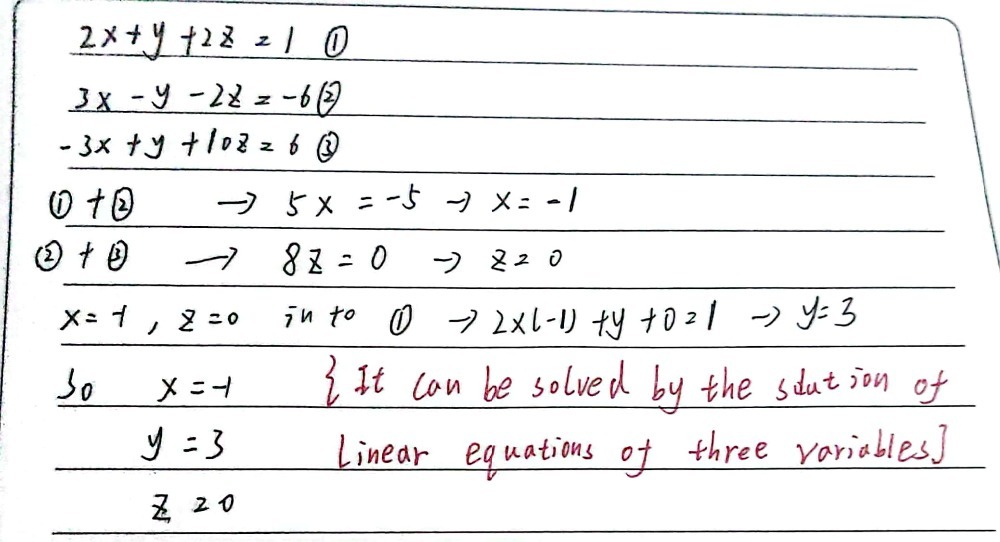 2x+y+2z=1 ①
3x-y-2z=-6②
-3x+y+10z=6 ③
①+② → 5x=-5 → x=-1
②+③ → 8z=0 → z=0
x=-1, z=0 in to ① → 2×(-1)+y+0=1 → y=3
So x=-1 {It can be solved by the solution of
y=3 Linear equations of three variables]
z=0